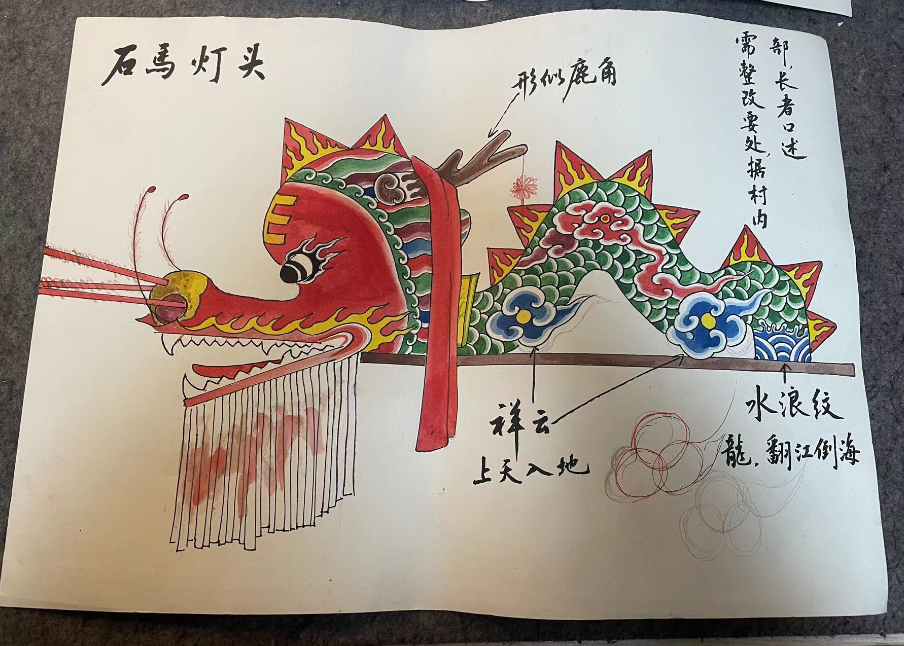 石馬灯头
形似鹿角
需整改要处，据村内
部，长者口述
祥云
上天入地
水浪纹
龍，翻江倒海